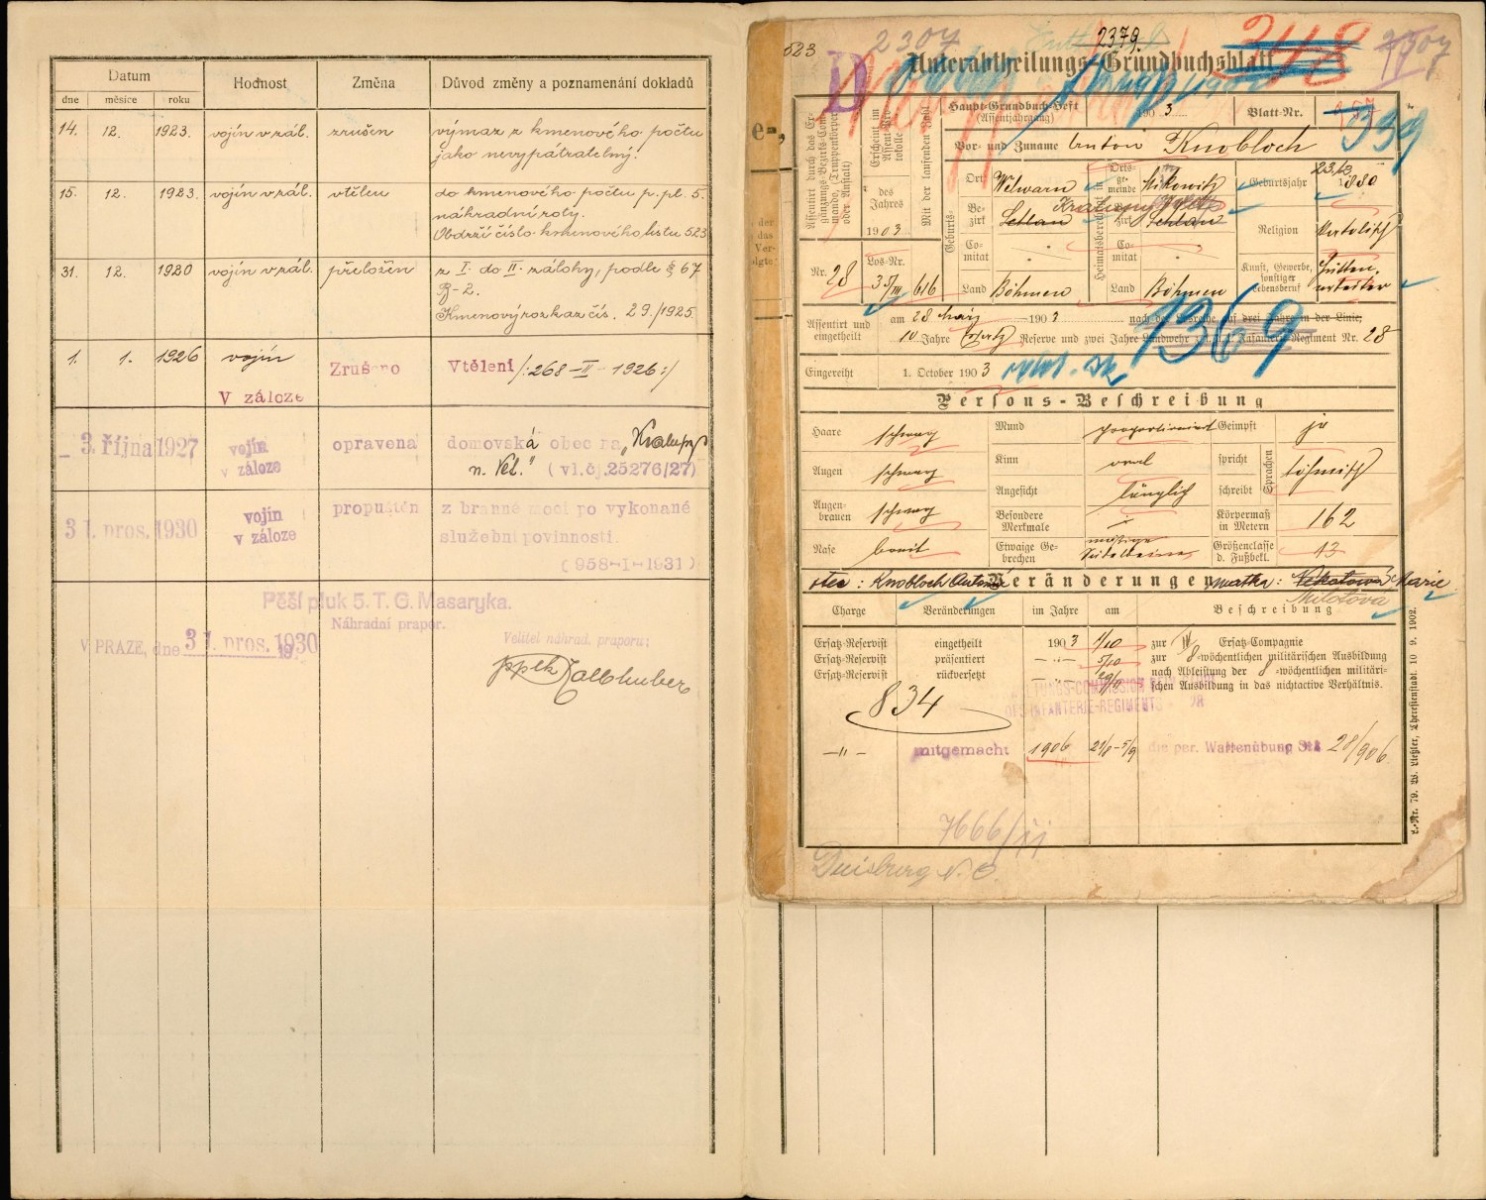 Datum
Hodnost
Změna
Důvod změny a poznamenání dokladů
dne
měsíce
roku
14. 12. 1923. vojín v zál. zrušen výmaz z kmenového počtu
jako nevypátratelný.
15. 12. 1923. vojín v zál. vtělen do kmenového počtu p. pl. 5.
náhradní roty.
Obdrží číslo kmenového listu 523
31. 12. 1920 vojín v zál. přeložen z I. do II. zálohy, podle § 67
B-2.
Kmenový rozkaz čís. 29./1925.
1. 1. 1926 vojín Zrušeno Vtělení /:268-II-1926:/
V záloze
3. října 1927 vojín v záloze opravena domovská obec na „Kralupy
n. Vel." (vl.čj.25276/27)
31. pros. 1930 vojín v záloze propuštěn z branné moci po vykonané
služební povinnosti.
(958-I-1931)
Pěší pluk 5. T. G. Masaryka.
Náhradní prapor.
V PRAZE, dne 31. pros. 1930
Velitel náhrad. praporu:
523
2307
2379
D
Unterabtheilungs-Grundbuchsblatt
Haupt-Grundbuch-Heft
(Assentjahrgang)
190 3
Blatt-Nr.
339
Vor- und Zuname Anton Knobloch
Assentirt durch das Ergänzungs-Bezirks-Commando, (Truppenkörper oder Anstalt)
Erscheint im Assent-Protokolle
des
Jahres
1903
Mit der laufenden Zahl
Nr. 28
Los-Nr.
616
Geburts-
Ort Welwarn
Bezirk Schlan
Comitat
Land Böhmen
Heimatsberechtigt in
Ortsgemeinde Mikowitz
Bezirk Schlan
Kralupy
Comitat
Land Böhmen
Geburtsjahr 1880
Religion
Kunst, Gewerbe, sonstiger Lebensberuf Hüttenarbeiter
Assentirt und eingetheilt
am 28 März 190 3 nach der Losreihe auf drei Jahre in der Linie,
10 Jahre Ersatz Reserve und zwei Jahre Landwehr Infanterie-Regiment Nr. 28
1369
Eingereiht 1. October 190 3
Persons-Beschreibung
Haare schwarz
Mund proportionirt
Geimpft ja
Augen schwarz
Kinn oval
spricht
Sprachen
böhmisch
Augenbrauen schwarz
Angesicht länglich
schreibt
Besondere Merkmale
Körpermaß in Metern 162
Nase breit
Etwaige Gebrechen
Größenclasse d. Fußbekl. 13
otec: Knobloch Antonín
Veränderungen
matka: Marie
Milotová
Charge
Veränderungen
im Jahre
am
Beschreibung
Ersatz-Reservist eingetheilt 190 3 1/10 zur IV Ersatz-Compagnie
Ersatz-Reservist präsentiert 5/10 zur 8-wöchentlichen militärischen Ausbildung
Ersatz-Reservist rückversetzt nach Ableistung der 8-wöchentlichen militärischen Ausbildung in das nichtactive Verhältnis.
834
-"- mitgemacht 1906 die per. Waffenübung 28/906.
7666/II
Duisberg N. O.